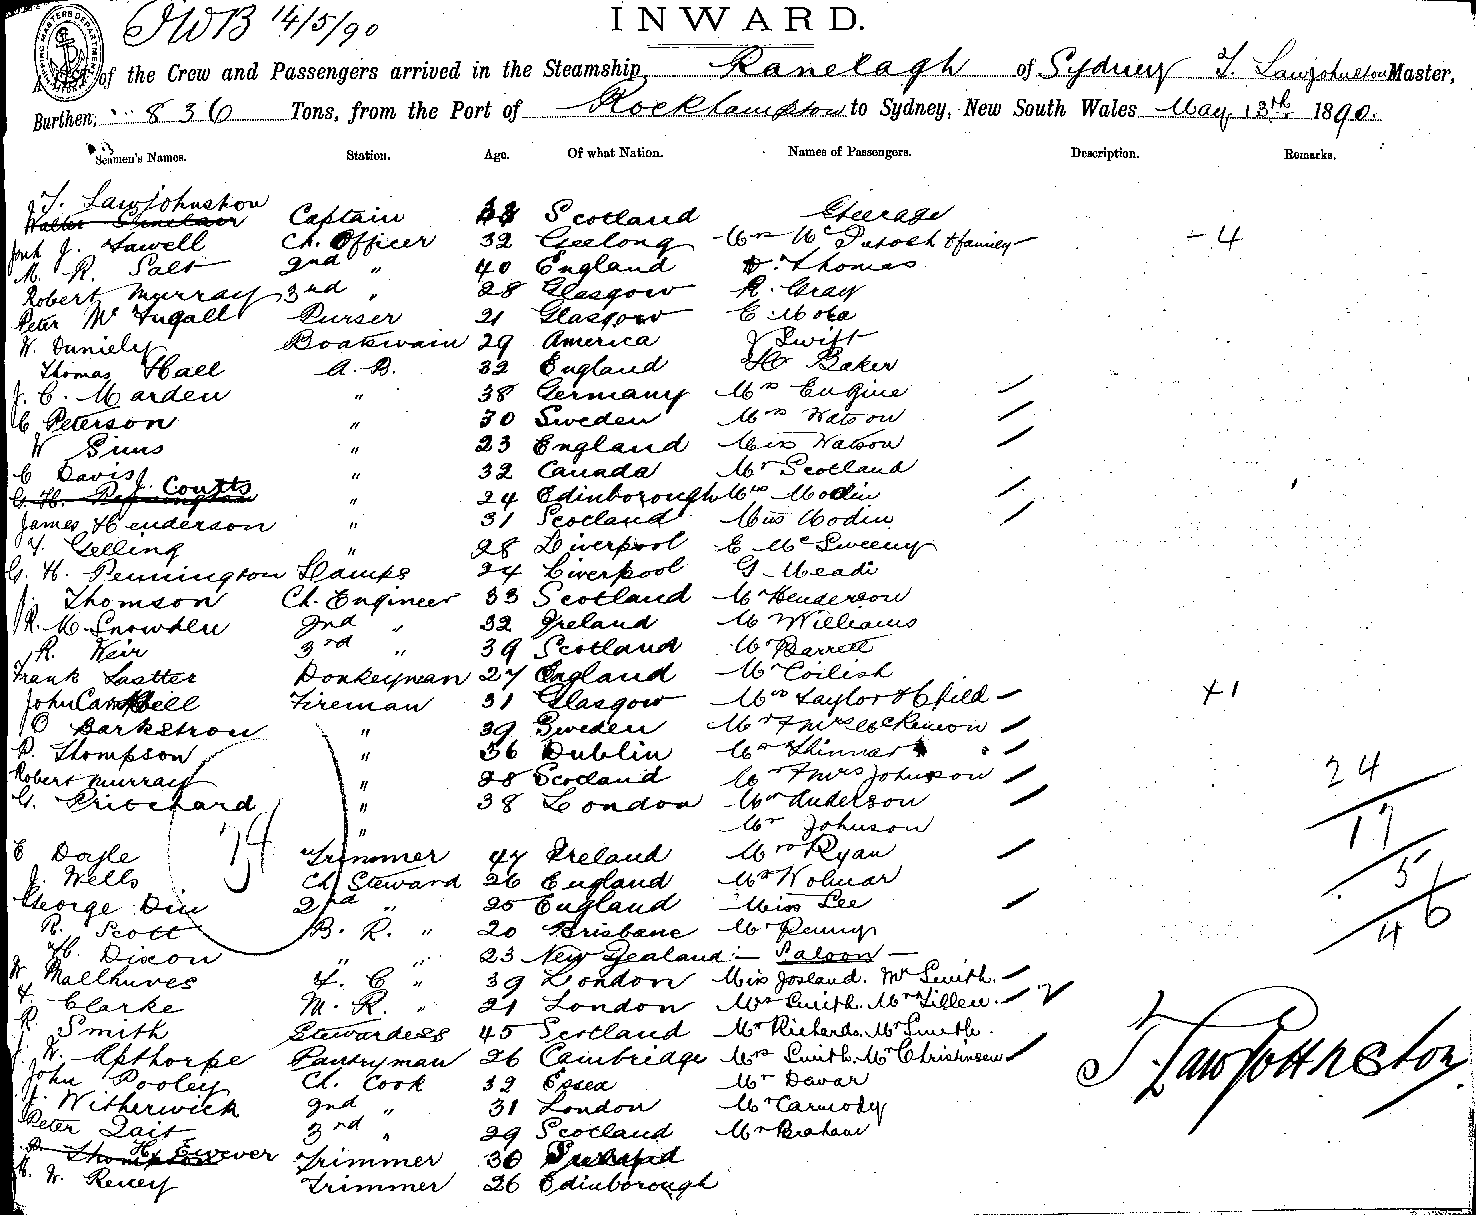 JWB 14/5/90
INWARD.
A List of the Crew and Passengers arrived in the Steamship, Ranelagh of Sydney T. Lawjohnston Master,
Burthen, 836 Tons, from the Port of Rockhampton to Sydney, New South Wales May 13th 1890.
Seamen's Names. Station. Age. Of what Nation. Names of Passengers. Description. Remarks.
T. Lawjohnston
Walter Sinclair Captain 38 Scotland Steerage
J. Sawell Ch. Officer 32 Geelong Mrs McIntosh & family - 4
M. R. Salt 2nd " 40 England Thomas
Robert Murray 3rd " 28 Glasgow R. Gray
Peter McFugall Purser 21 Glasgow E Mota
W. Daniely Boatswain 29 America J Swift
Thomas Hall A.B. 32 England H Baker
J. C. Marden " 38 Germany Mrs Eugine
C Peterson " 30 Sweden Mrs Watson
W Sims " 23 England Miss Watson
C Davis " 32 Canada Mr Scotland
J. Coutts
G. H. Pennington " 24 Edinborough Mrs Modin
James Henderson " 31 Scotland Miss Modin
T. Gelling " 28 Liverpool E McSweeny
G. H. Pennington Lamps 24 Liverpool G Meade
J. Thomson Ch. Engineer 33 Scotland Mr Henderson
R. M. Snowden 2nd " 32 Ireland Mr Williams
R. Weir 3rd " 39 Scotland Mr Barrett
Frank Lastter Donkeyman 27 England Mr Coilish
John Campbell Fireman 31 Glasgow Mrs Taylor & Child + 1
O Barkstron " 39 Sweden Mr & Mrs McKinnon
P. Thompson " 36 Dublin Mr Skinnar
Robert Murray " 28 Scotland Mr & Mrs Johnson 24
G. Pritchard " 38 London Mr Anderson
" Mr Johnson 17
E Doyle Trimmer 47 Ireland Mrs Ryan
J. Wells Ch. Steward 26 England Mr Wolmar 5
74
George Din 2nd " 25 England Miss Lee 6
R. Scott B. R. " 20 Brisbane Mr Penny 46
H. Dixon " " 23 New Zealand - Saloon -
W Mallhuves F. C " 39 London Miss Josland. Mr Smith.
F. Clarke M. R. " 21 London Mrs Smith. Mr Tillen. 2
R. Smith Stewardess 45 Scotland Mr Richards. Mr Smith.
J. W. Apthorpe Pantryman 26 Cambridge Mrs Smith. Mr Christinsen
John Pooley Ch. Cook 32 Essex Mr Davar T. Lawjohnston
J. Witherwick 2nd " 31 London Mr Carmody
Peter Tait 3rd " 29 Scotland Mr Braham
H. Ewever
Thompson Trimmer 30
H. W. Reney Trimmer 26 Edinborough